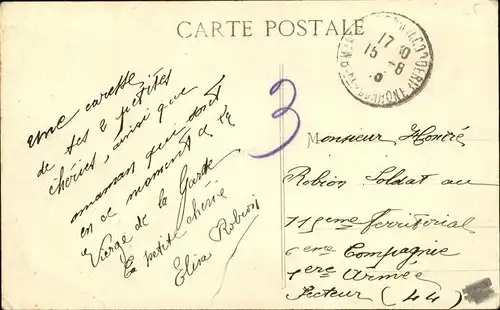 CARTE POSTALE
17 30
15 - 8
une caresse
de tes 2 petites
chéries, ainsi que
maman qui sont
en ce moment à la
Vierge de la Garde
ta petite chérie
Elisa Robion
3
Monsieur Honoré
Robion Soldat au
115eme Territorial
6eme Compagnie
1ere Armée
Secteur (44)